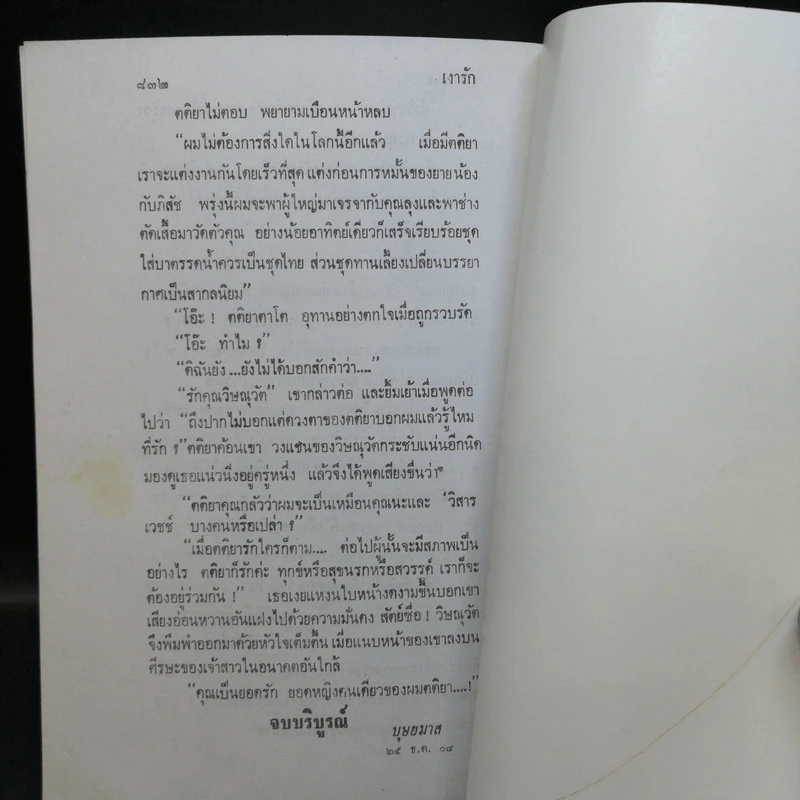 ๘๓๒
เงารัก
ตติยาไม่ตอบ พยายามเบือนหน้าหลบ
“ผมไม่ต้องการสิ่งใดในโลกนี้อีกแล้ว เมื่อมีตติยา
เราจะแต่งงานกันโดยเร็วที่สุด แต่งก่อนการหมั้นของยายน้อง
กับภิสัช พรุ่งนี้ผมจะพาผู้ใหญ่มาเจรจากับคุณลุงและพาช่าง
ตัดเสื้อมาวัดตัวคุณ อย่างน้อยอาทิตย์เดียวก็เสร็จเรียบร้อยชุด
ใส่บาตรรดน้ำควรเป็นชุดไทย ส่วนชุดทานเลี้ยงเปลี่ยนบรรยา
กาศเป็นสากลนิยม”
“โอ๊ะ ! ตติยาตาโต อุทานอย่างตกใจเมื่อถูกรวบรัด
“โอ๊ะ ทำไม ?”
“ดิฉันยัง ...ยังไม่ได้บอกสักคำว่า....”
“รักคุณวิษณุวัต” เขากล่าวต่อ และยิ้มเย้าเมื่อพูดต่อ
ไปว่า “ถึงปากไม่บอกแต่ดวงตาของตติยาบอกผมแล้วรู้ไหม
ที่รัก ?” ตติยาค้อนเขา วงแขนของวิษณุวัตกระชับแน่นอีกนิด
มองดูเธอแน่วนิ่งอยู่ครู่หนึ่ง แล้วจึงได้พูดเสียงขื่นว่า
“ตติยาคุณกลัวว่าผมจะเป็นเหมือนคุณนะและ ‘วิสาร
เวชช์ บางคนหรือเปล่า ?”
“เมื่อตติยารักใครก็ตาม.... ต่อไปผู้นั้นจะมีสภาพเป็น
อย่างไร ตติยาก็รักค่ะ ทุกข์หรือสุขนรกหรือสวรรค์ เราก็จะ
ต้องอยู่ร่วมกัน !” เธอเงยแหงนใบหน้างดงามขึ้นบอกเขา
เสียงอ่อนหวานอันแฝงไปด้วยความมั่นคง สัตย์ซื่อ ! วิษณุวัต
จึงพึมพำออกมาด้วยหัวใจเต็มตื้น เมื่อแนบหน้าของเขาลงบน
ศีรษะของเจ้าสาวในอนาคตอันใกล้
“คุณเป็นยอดรัก ยอดหญิงคนเดียวของผมตติยา....!”
จบบริบูรณ์
บุษยมาส
๒๕ ธ.ค. ๐๘